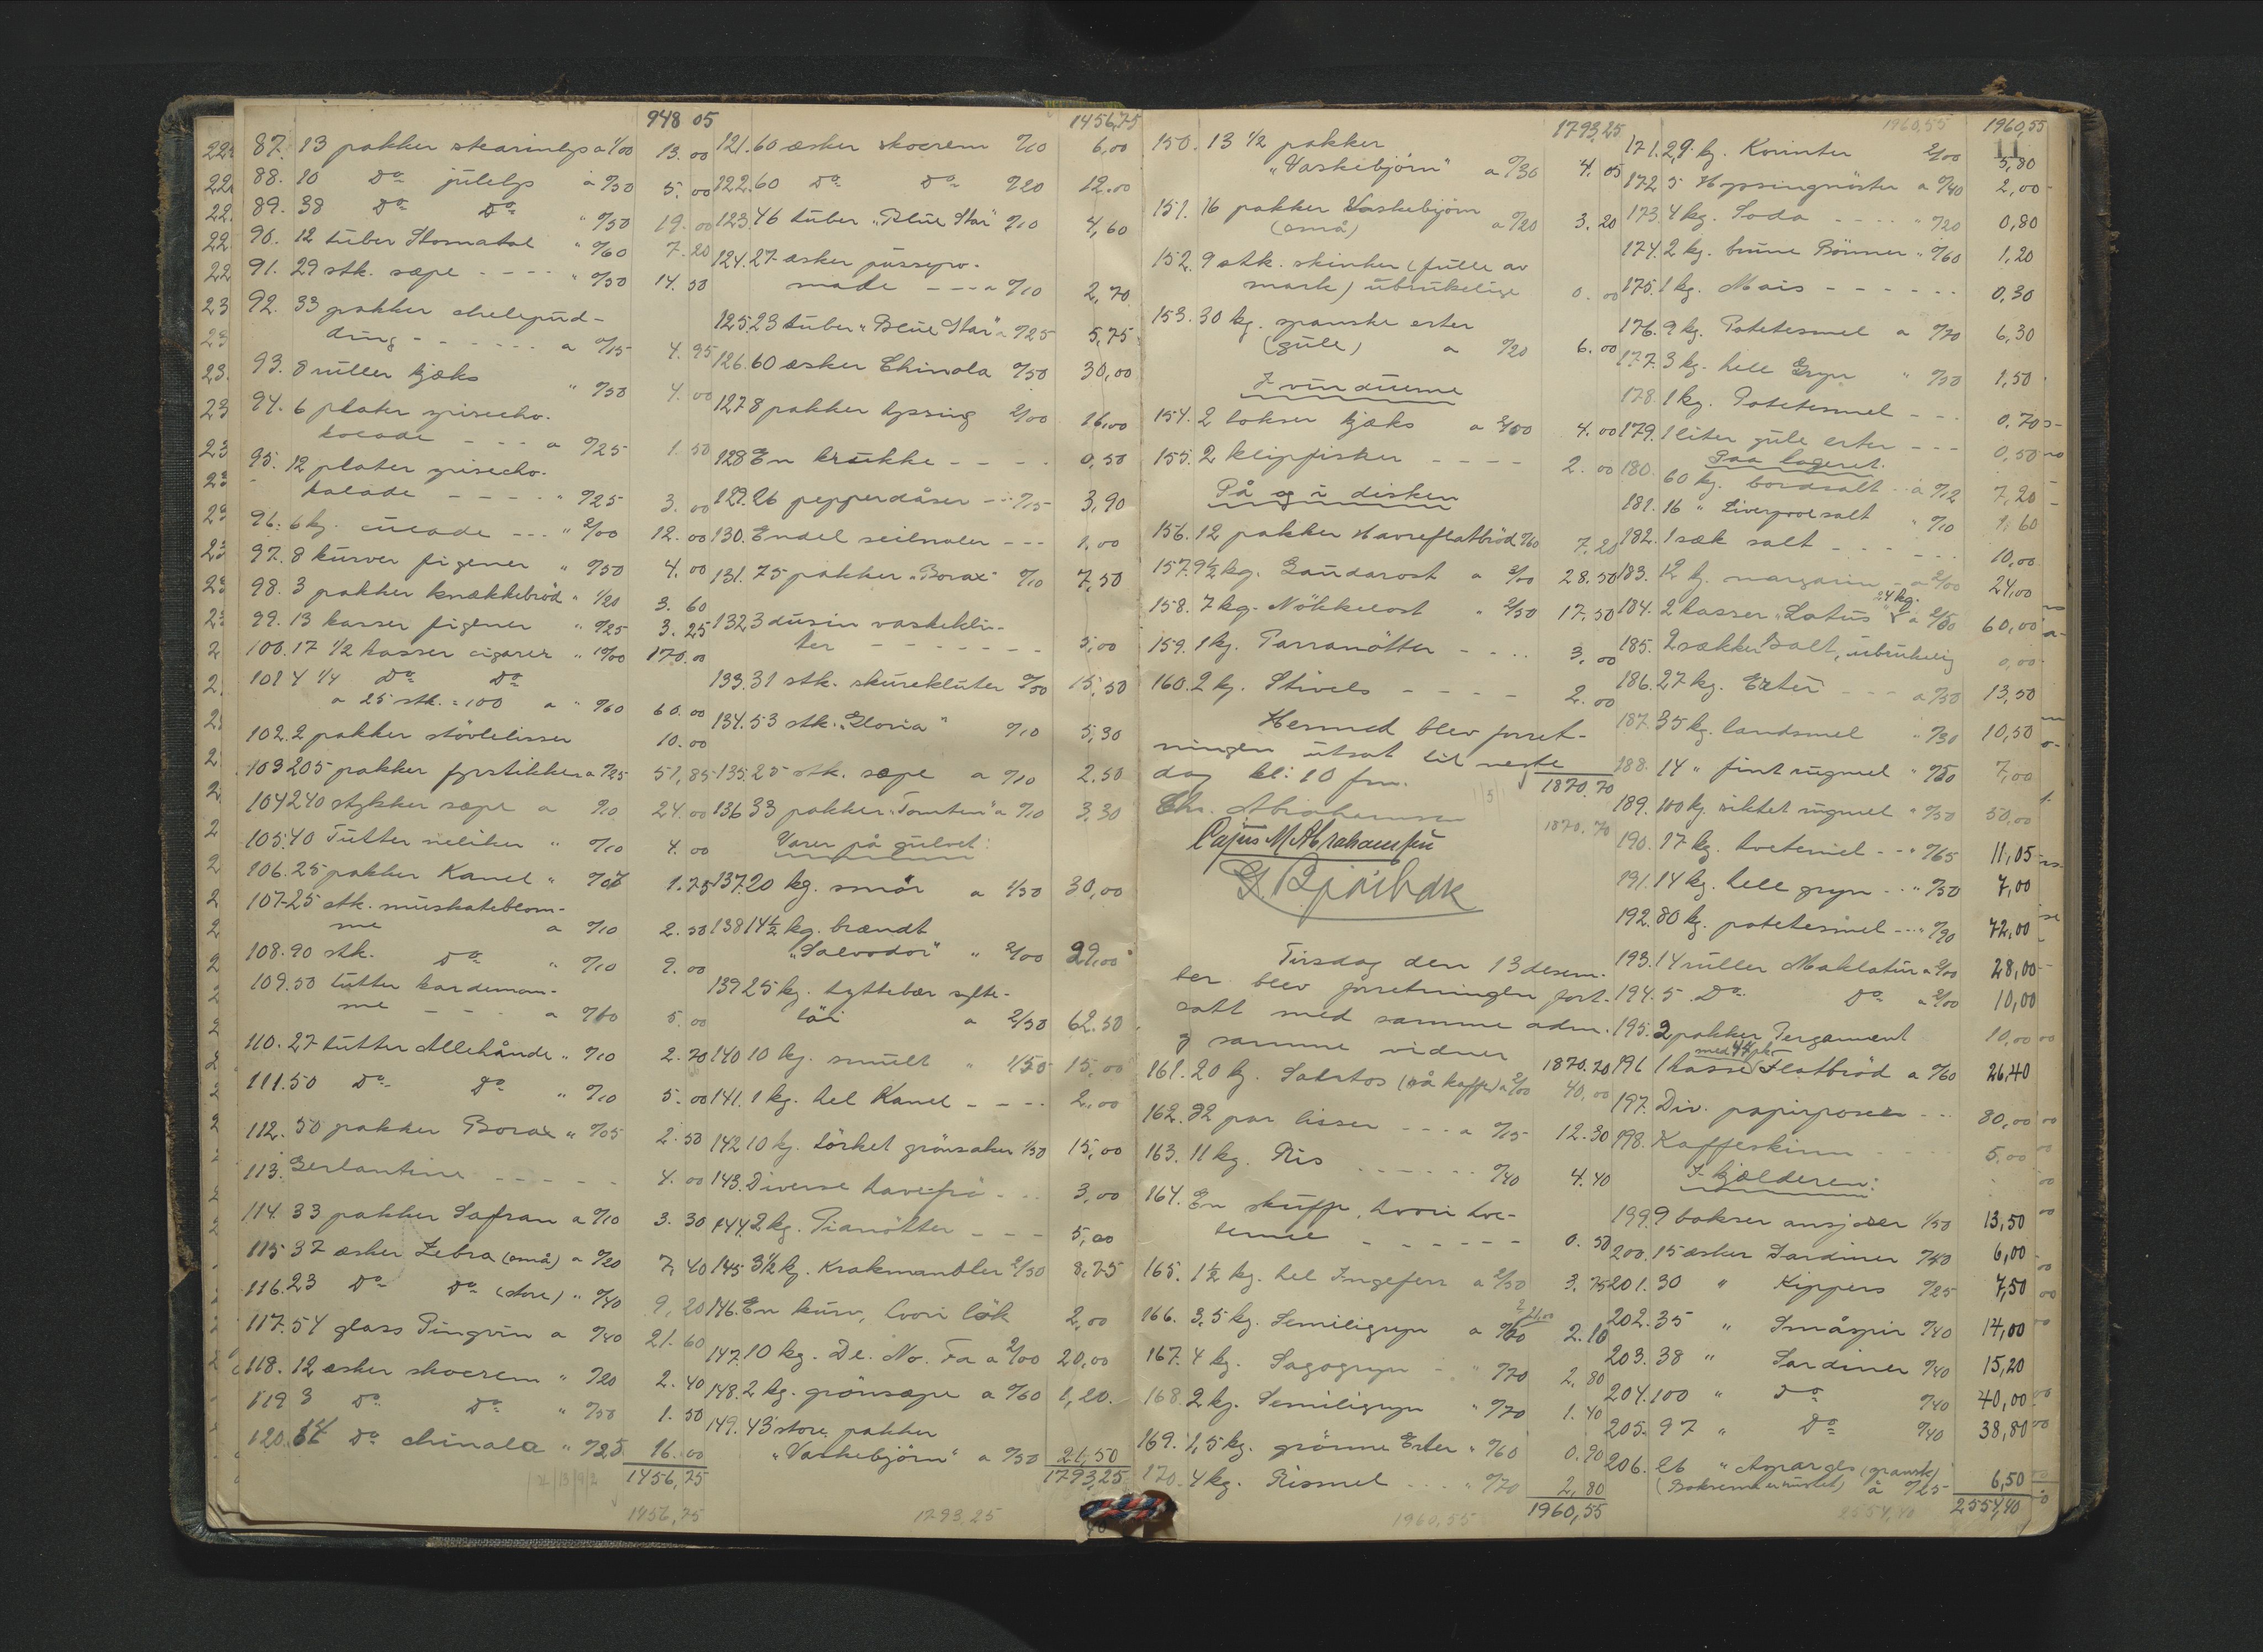 948 05
87. 13 pakker stearinlys a 1/00 13.00
88. 10 Do julelys a 0/50 5.00
89. 38 Do Do " 0/50 19.00
90. 12 tuber Stomatol " 0/60 7.20
91. 29 stk. sæpe - - - - " 0/50 14.50
92. 33 pakker
ding - - - - - - a 0/15 4.95
93. 8 ruller kjæks " 0/50 4.00
94. 6 plater spisecho-
kolade - - - a 0/25 1.50
95. 12 plater spisecho-
kolade - - - - " 0/25 3.00
96. 6 kg. - - - " 2/00 12.00
97. 8 kurver figener " 0/50 4.00
98. 3 pakker knækkebröd " 1/20 3.60
99. 13 kasser figener " 0/25 3.25
100. 17 1/2 kasser cigarer " 10/00 170.00
101 4 1/4 Do Do
a 25 stk. = 100 a " 0/60 60.00
102. 2 pakker stövlelisser 10.00
103 205 pakker fyrstikker a 0/25 51,85
104 240 stykker sæpe a 0/10 24.00
105. 40 Tutter neliker " 0/10 4.00
106. 25 pakker Kanel " 0/07 1.75
107. 25 stk. muskateblom-
me a 0/10 2.50
108. 90 stk. Do " 0/10 9.00
109. 50 tutter kardemom-
me - - - a 0/10 5.00
110. 27 tutter Allehånde " 0/10 2.70
111. 50 Do Do " 0/10 5.00
112. 50 pakker Borax " 0/05 2.50
113. Gerlantine - - - - - 4.00
114. 33 pakker Safran a 0/10 3.30
115. 37 æsker Zebra (små) a 0/20 7.40
116. 23 Do Do (store) " 0/40 9,20
117. 54 glass Pingvin a 0/40 21.60
118. 12 æsker skocrem " 0/20 2.40
119 3 Do Do " 0/50 1.50
120. 64 Do chinola " 0/25 16.00
1456,75
1456,75
1456,75
121. 60 æsker skocrem 0/10 6,00
122. 60 Do Do 0/20 12.00
123. 46 tuber "Blue Star" 0/10 4,60
124. 27 æsker pussepo-
made - - - a 0/10 2,70
125. 23 tuber "Blue Star" a 0/25 5,75
126. 60 æsker Chinola 0/50 30,00
127 8 pakker lyssing 2/00 16,00
128 En krukke - - - - 0,50
129. 26 pepperdåser - " 0/15 3,90
130. Endel seilnaler - - - 1,00
131. 75 pakker "Borax" 0/10 7,50
132 3 dusin vaskeklu-
ter - - - - - - - 5,00
133. 31 stk. skurekluter 0/50 15,50
134. 53 stk. "Gloria" 0/10 5,30
135. 25 stk. sæpe a 0/10 2.50
136 33 pakker "Tomten" a 0/10 3,30
Varer på gulvet:
137. 20 kg. smör a 1/50 30,00
138 14 1/2 kg. brændt
"Salvador" " 2/00 29,00
139 25 kg. tyttebær sylte-
töi a 2/50 62.50
140 10 kg. smult " 1/50 15,00
141. 1 kg. hel Kanel - - - - 2,00
142 10 kg. törket grönsaker 1/50 15,00
143. Diverse havefrö - - - 3,00
144. 2 kg. Pianötter - - - 5,00
145. 3 1/2 kg. Krakmandler 2/50 8,75
146. En kurv, hvori lök 2,00
147. 10 kg. De. No. Fa a 2/00 20,00
148. 2 kg. grönsæpe a 0/60 1,20.
149. 43 store pakker
"Vaskebjörn" a 0/50 21,50
1793,25
1793,25
1793,25
150. 13 1/2 pakker
"Vaskebjörn" a 0/30 4.05
151. 16 pakker Vaskebjörn
(små) a 0/20 3.20
152. 9 stk. skinker (fulle av
mark) ubrukelige 0.00
153. 30 kg. spanske erter
(gule) a 0/20 6.00
I vinduerne
154. 2 bokser kjæks a 2/00 4.00
155. 2 klipfisker - - - - 2.00
På og i disken
156. 12 pakker Havreflatbröd 0/60 7.20
157. 9 1/2 kg. Gaudarost a 3/00 28.50
158. 7 kg. Nökkelost " 2/50 17.50
159. 1 kg. Parranötter - - - - 3,00
160. 2 kg. Stivels - - - - 2.00
Hermed blev forret-
ningen utsat til neste
dag kl: 10 fm. 1870.70
Chr. Abrahamsen 1870.70
Cajus M. Abrahamsen
G. Björbæk
Tirsdag den 13 desem-
ber blev forretningen fort-
satt med samme adm.
og samme vidner 1870.70
161. 20 kg. Santos (rå kaffe) a 2/00 40,00
162. 82 par lisser - - - a 0/15 12.30
163. 11 kg. Ris - - - - - - 0/40 4.40
164. En skuffe, hvori hve-
temel - - - - - - 0.50
165. 1 1/2 kg. hel Ingefer a 2/50 3.75
166. 3,5 kg. Semiligryn a 0/60 2.10
167. 4 kg. Sagogryn - " 0/70 2,80
168. 2 kg. Semiligryn " 0/70 1.40
169. 1,5 kg. grönne Erter " 0/60 0.90
170. 4 kg. Rismel - - - " 0/70 2,80
1960,55
1960,55
1960,55 1960,55
11
171. 2,9 kg. Korinter 2/00 5,80
172. 5 a 0/40 2,00
173. 4 kg. Soda - - - - " 0/20 0,80
174. 2 kg. brune Bönner " 0/60 1,20
175. 1 kg. Mais - - - - - - 0,30
176. 9 kg. Potetesmel a 0/70 6,30
177. 3 kg. hele Gryn " 0/50 1,50
178. 1 kg. Potetesmel - - - 0,70
179. 1 liter gule erter - - - 0,50
Paa lageret.
180. 60 kg. bordsalt - - a 0/12 7,20
181. 16 " Liverpoolsalt " 0/10 1,60
182. 1 sæk salt - - - - - - - 10,00
183. 12 kg. margarin - a 2/00 24,00
24 kg.
184. 2 kasser "Lotus" a 2/50 60,00
185. 2 sækker Salt, ubrukelig 0,00
186. 27 kg. Erter - - - a 0/50 13,50
187. 35 kg. landsmel " 0/30 10,50
188. 14 " fint rugmel " 0/50 7,00
189. 100 kg. siktet rugmel " 0/50 50,00
190. 17 kg. hvetemel - - " 0/65 11,05
191. 14 kg. hele gryn - - " 0/50 7,00
192. 80 kg. potetesmel - - - " 0/90 72,00
193. 14 ruller Maklatur a 2/00 28,00
194. 5 Do Do a 2/00 10,00
195. 2 pakker Pergament 10,00
med 44 pk.
196 1 kasse Flatbröd a 0/60 26,40
197. Div. papirposer - - - 80,00
198. Kaffeskinn - - - - 5.00
I kjælderen:
199. 9 bokser ansjoser 1/50 13,50
200. 15 æsker Sardiner 0/40 6,00
201. 30 " Kippers 0/25 7,50
202. 35 " Småspir 0/40 14,00
203. 38 " Sardiner 0/40 15,20
204. 100 " Do 0/40 40,00
205. 97 " Do 0/40 38,80
206. 26 " Asparges (spansk)
(Bokserne er rustet) à 0/25 6,50
2554,40
2554,40